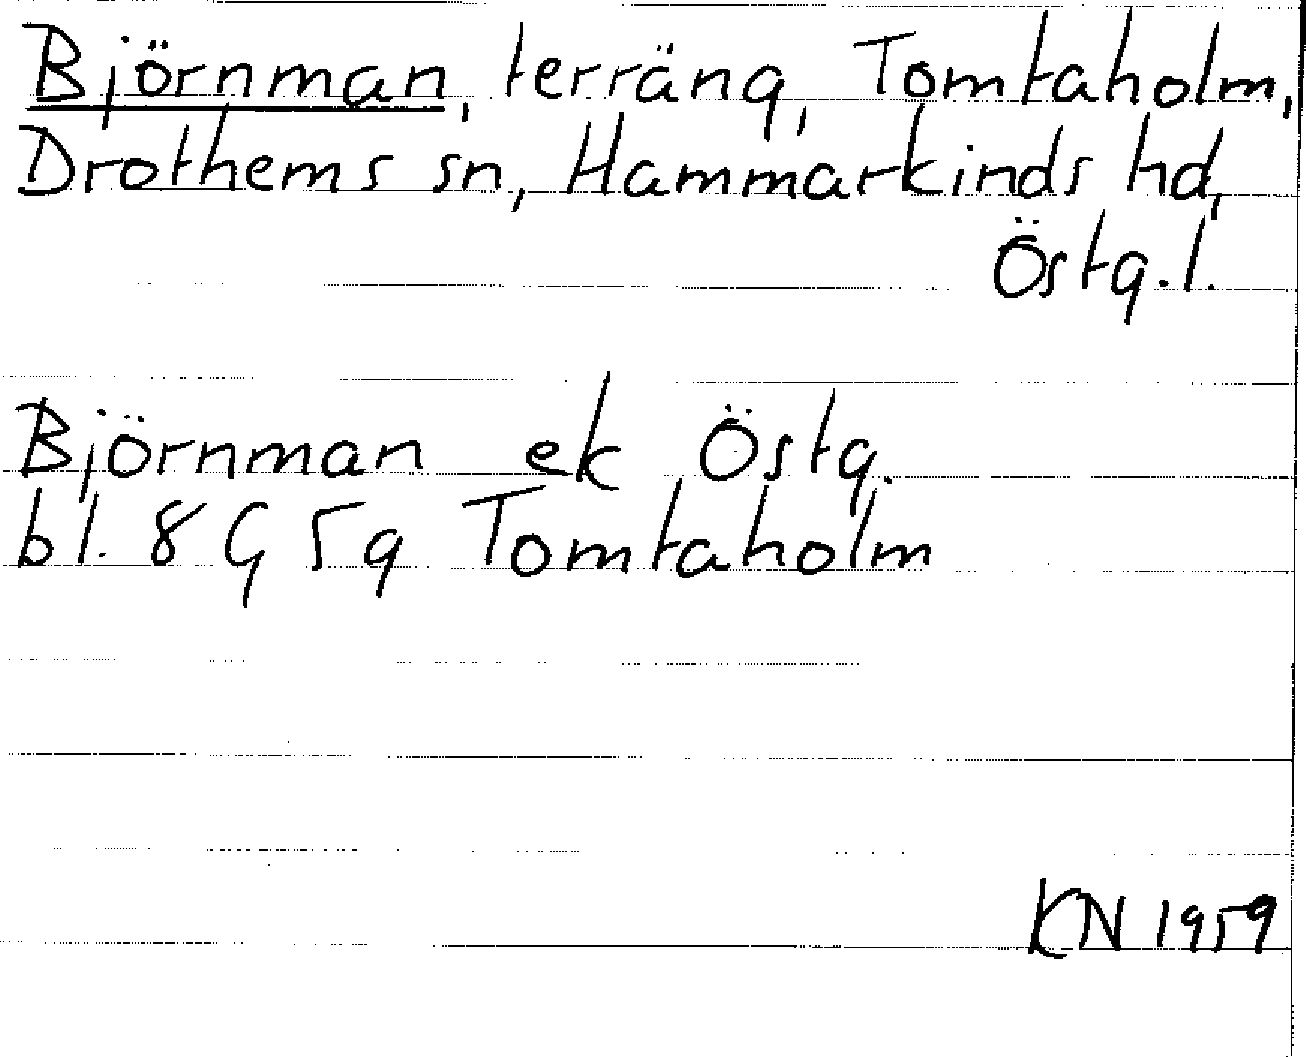 Björnman, terräng, Tomtaholm,
Drothems sn, Hammarkinds hd,
Östg.l.
Björnman ek Östg.
bl. 8G 5g Tomtaholm
KN 1959